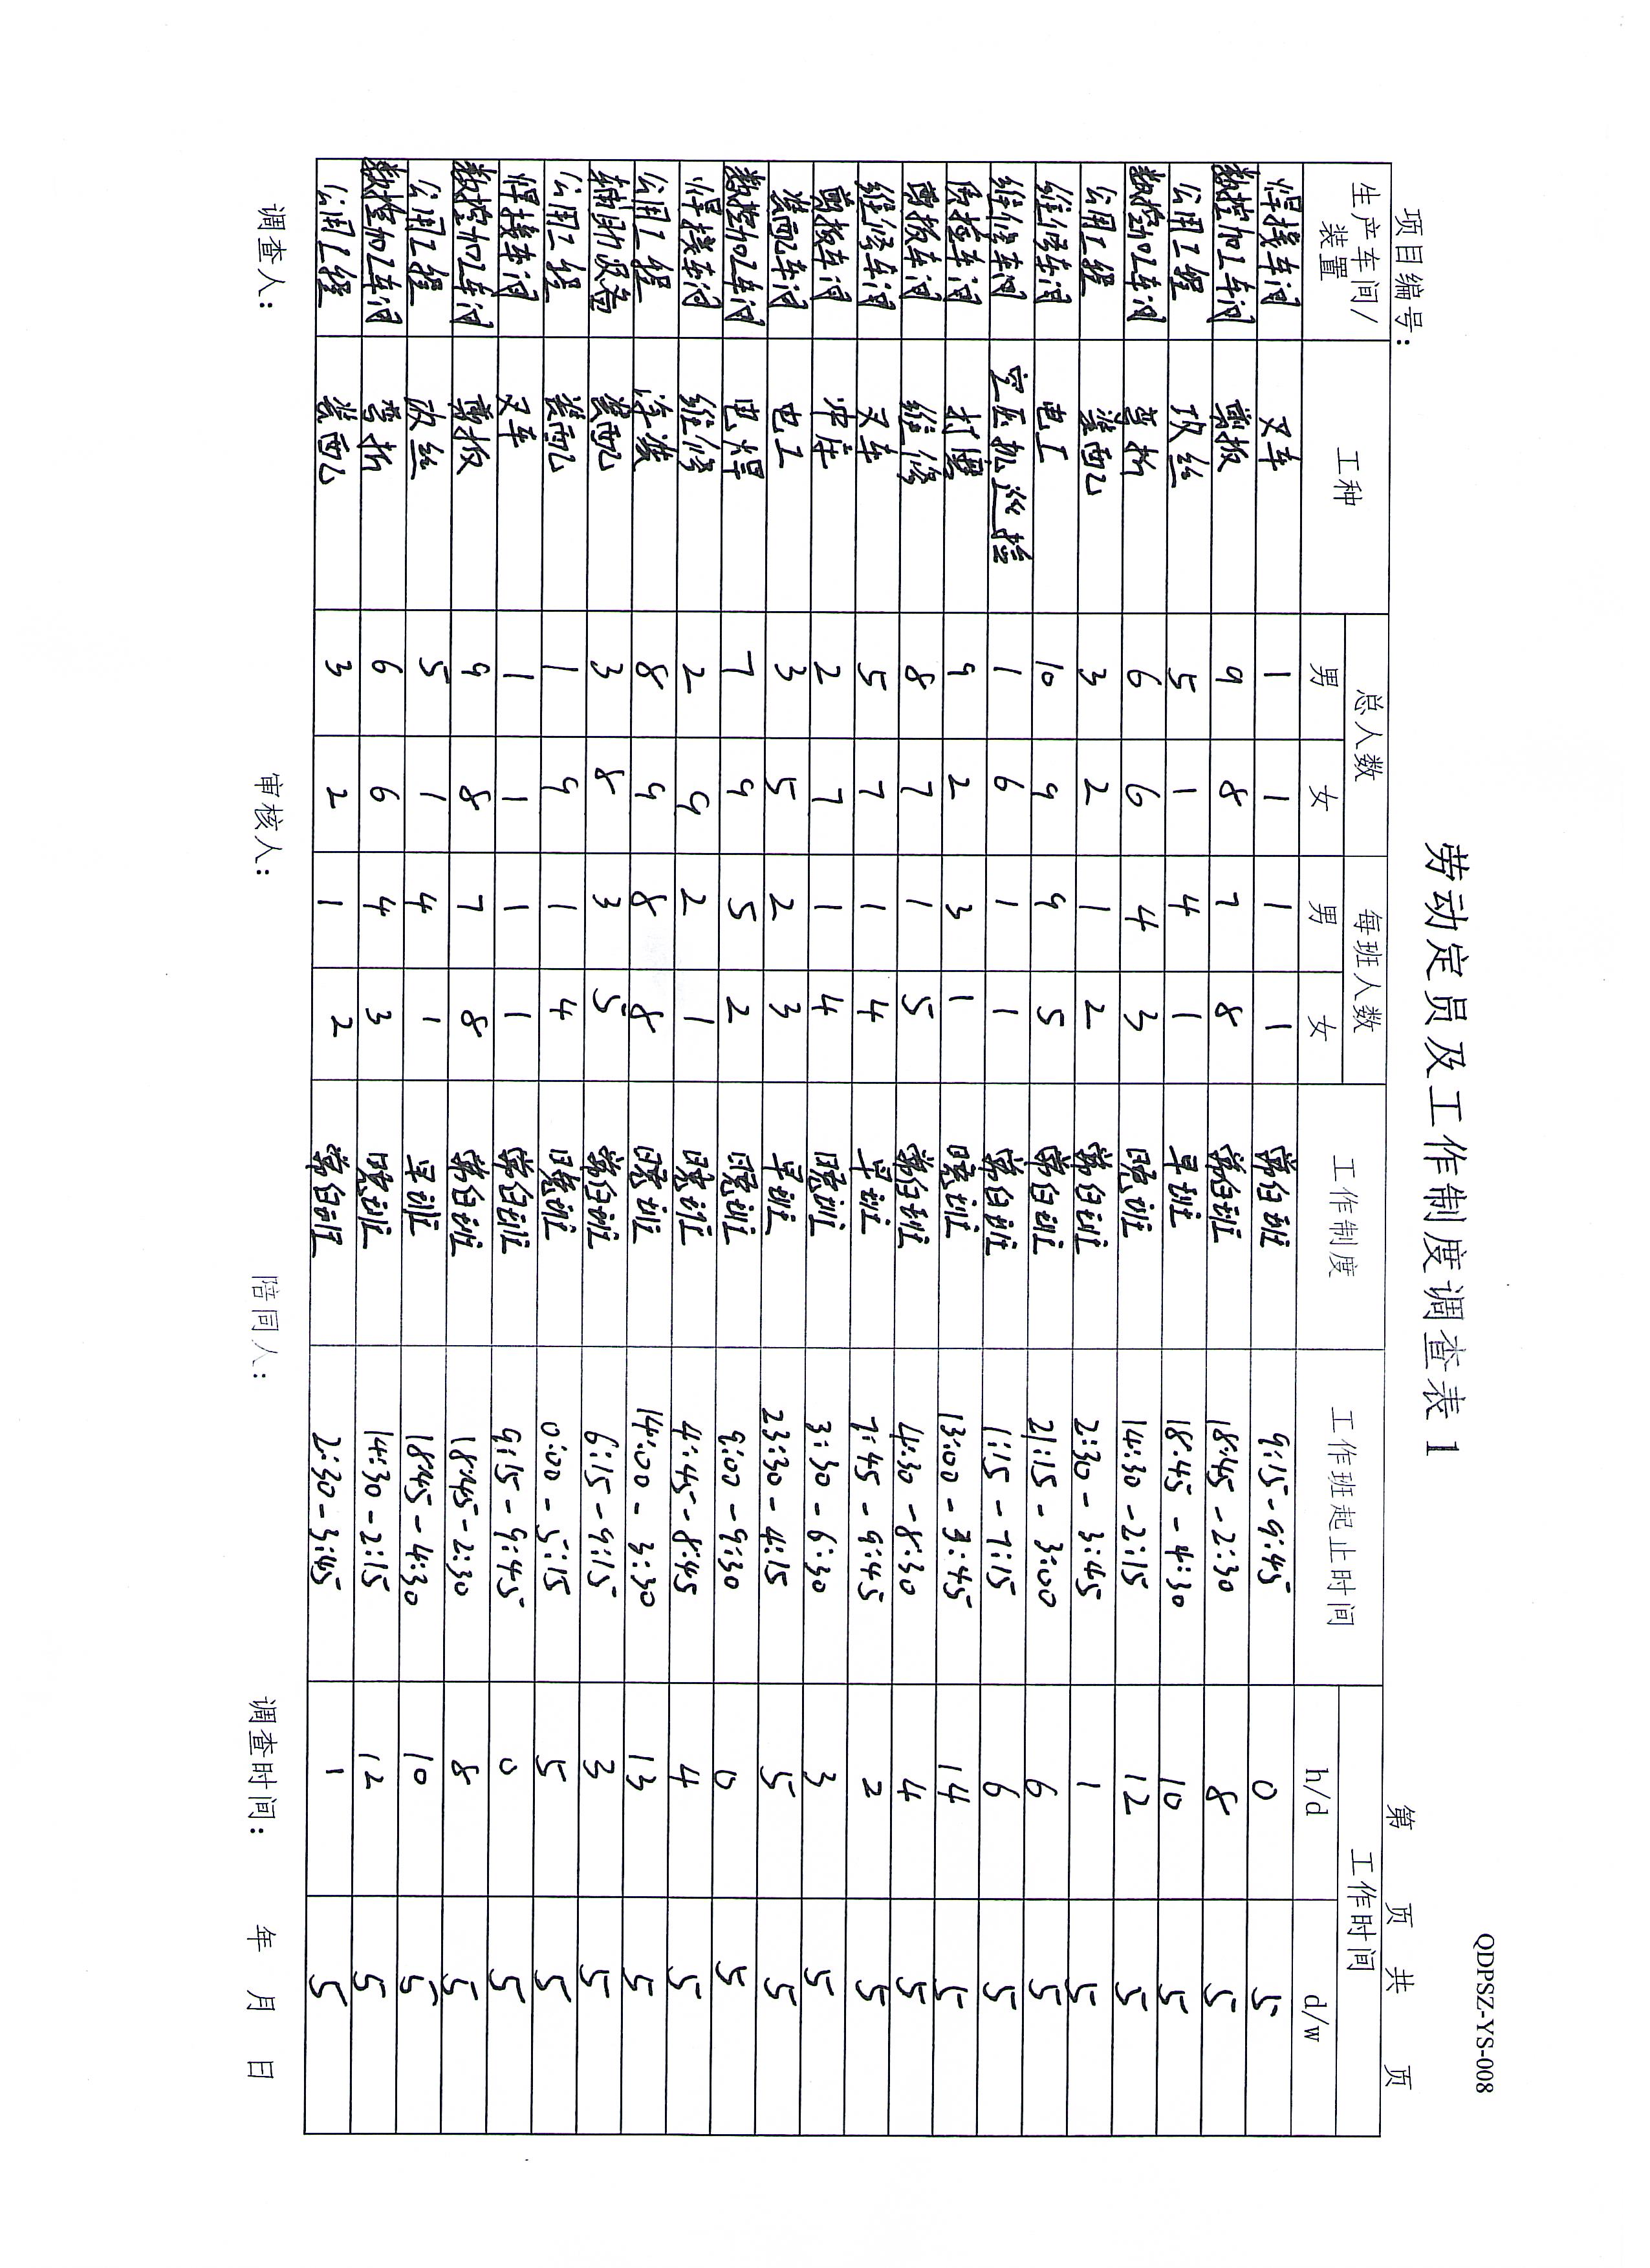 QDPSZ-YS-008
劳动定员及工作制度调查表1
项目编号： 第 页 共 页
生产车间/装置 工种 总人数 每班人数 工作制度 工作班起止时间 工作时间
男 女 男 女 h/d d/w
焊接车间 叉车 1 1 1 1 常白班 9:15-9:45 0 5
数控加工车间 剪板 9 8 7 8 常白班 18:45-2:30 8 5
公用工程 攻丝 5 1 4 1 早班 18:45-4:30 10 5
数控加工车间 弯折 6 6 4 3 晚班 14:30-2:15 12 5
公用工程 装配 3 2 1 2 常白班 2:30-3:45 1 5
维修车间 电工 10 9 9 5 常白班 21:15-3:00 6 5
维修车间 空压机巡检 1 6 1 1 常白班 1:15-7:15 6 5
质检车间 打磨 9 2 3 1 晚班 13:00-3:45 14 5
剪板车间 维修 8 7 1 5 常白班 4:30-8:30 4 5
维修车间 叉车 5 7 1 4 早班 7:45-9:45 2 5
剪板车间 冲床 2 7 1 4 晚班 3:30-6:30 3 5
装配车间 电工 3 5 2 3 早班 23:30-4:15 5 5
数控加工车间 电焊 7 9 5 2 晚班 9:00-9:30 0 5
焊接车间 维修 2 9 2 1 晚班 4:45-8:45 4 5
公用工程 涂装 8 9 8 8 晚班 14:00-3:30 13 5
辅助设备 装配 3 8 3 5 常白班 6:15-9:15 3 5
公用工程 装配 1 9 1 4 晚班 0:00-5:15 5 5
焊接车间 叉车 1 1 1 1 常白班 9:15-9:45 0 5
数控加工车间 剪板 9 8 7 8 常白班 18:45-2:30 8 5
公用工程 攻丝 5 1 4 1 早班 18:45-4:30 10 5
数控加工车间 弯折 6 6 4 3 晚班 14:30-2:15 12 5
公用工程 装配 3 2 1 2 常白班 2:30-3:45 1 5
调查人： 审核人： 陪同人： 调查时间： 年 月 日